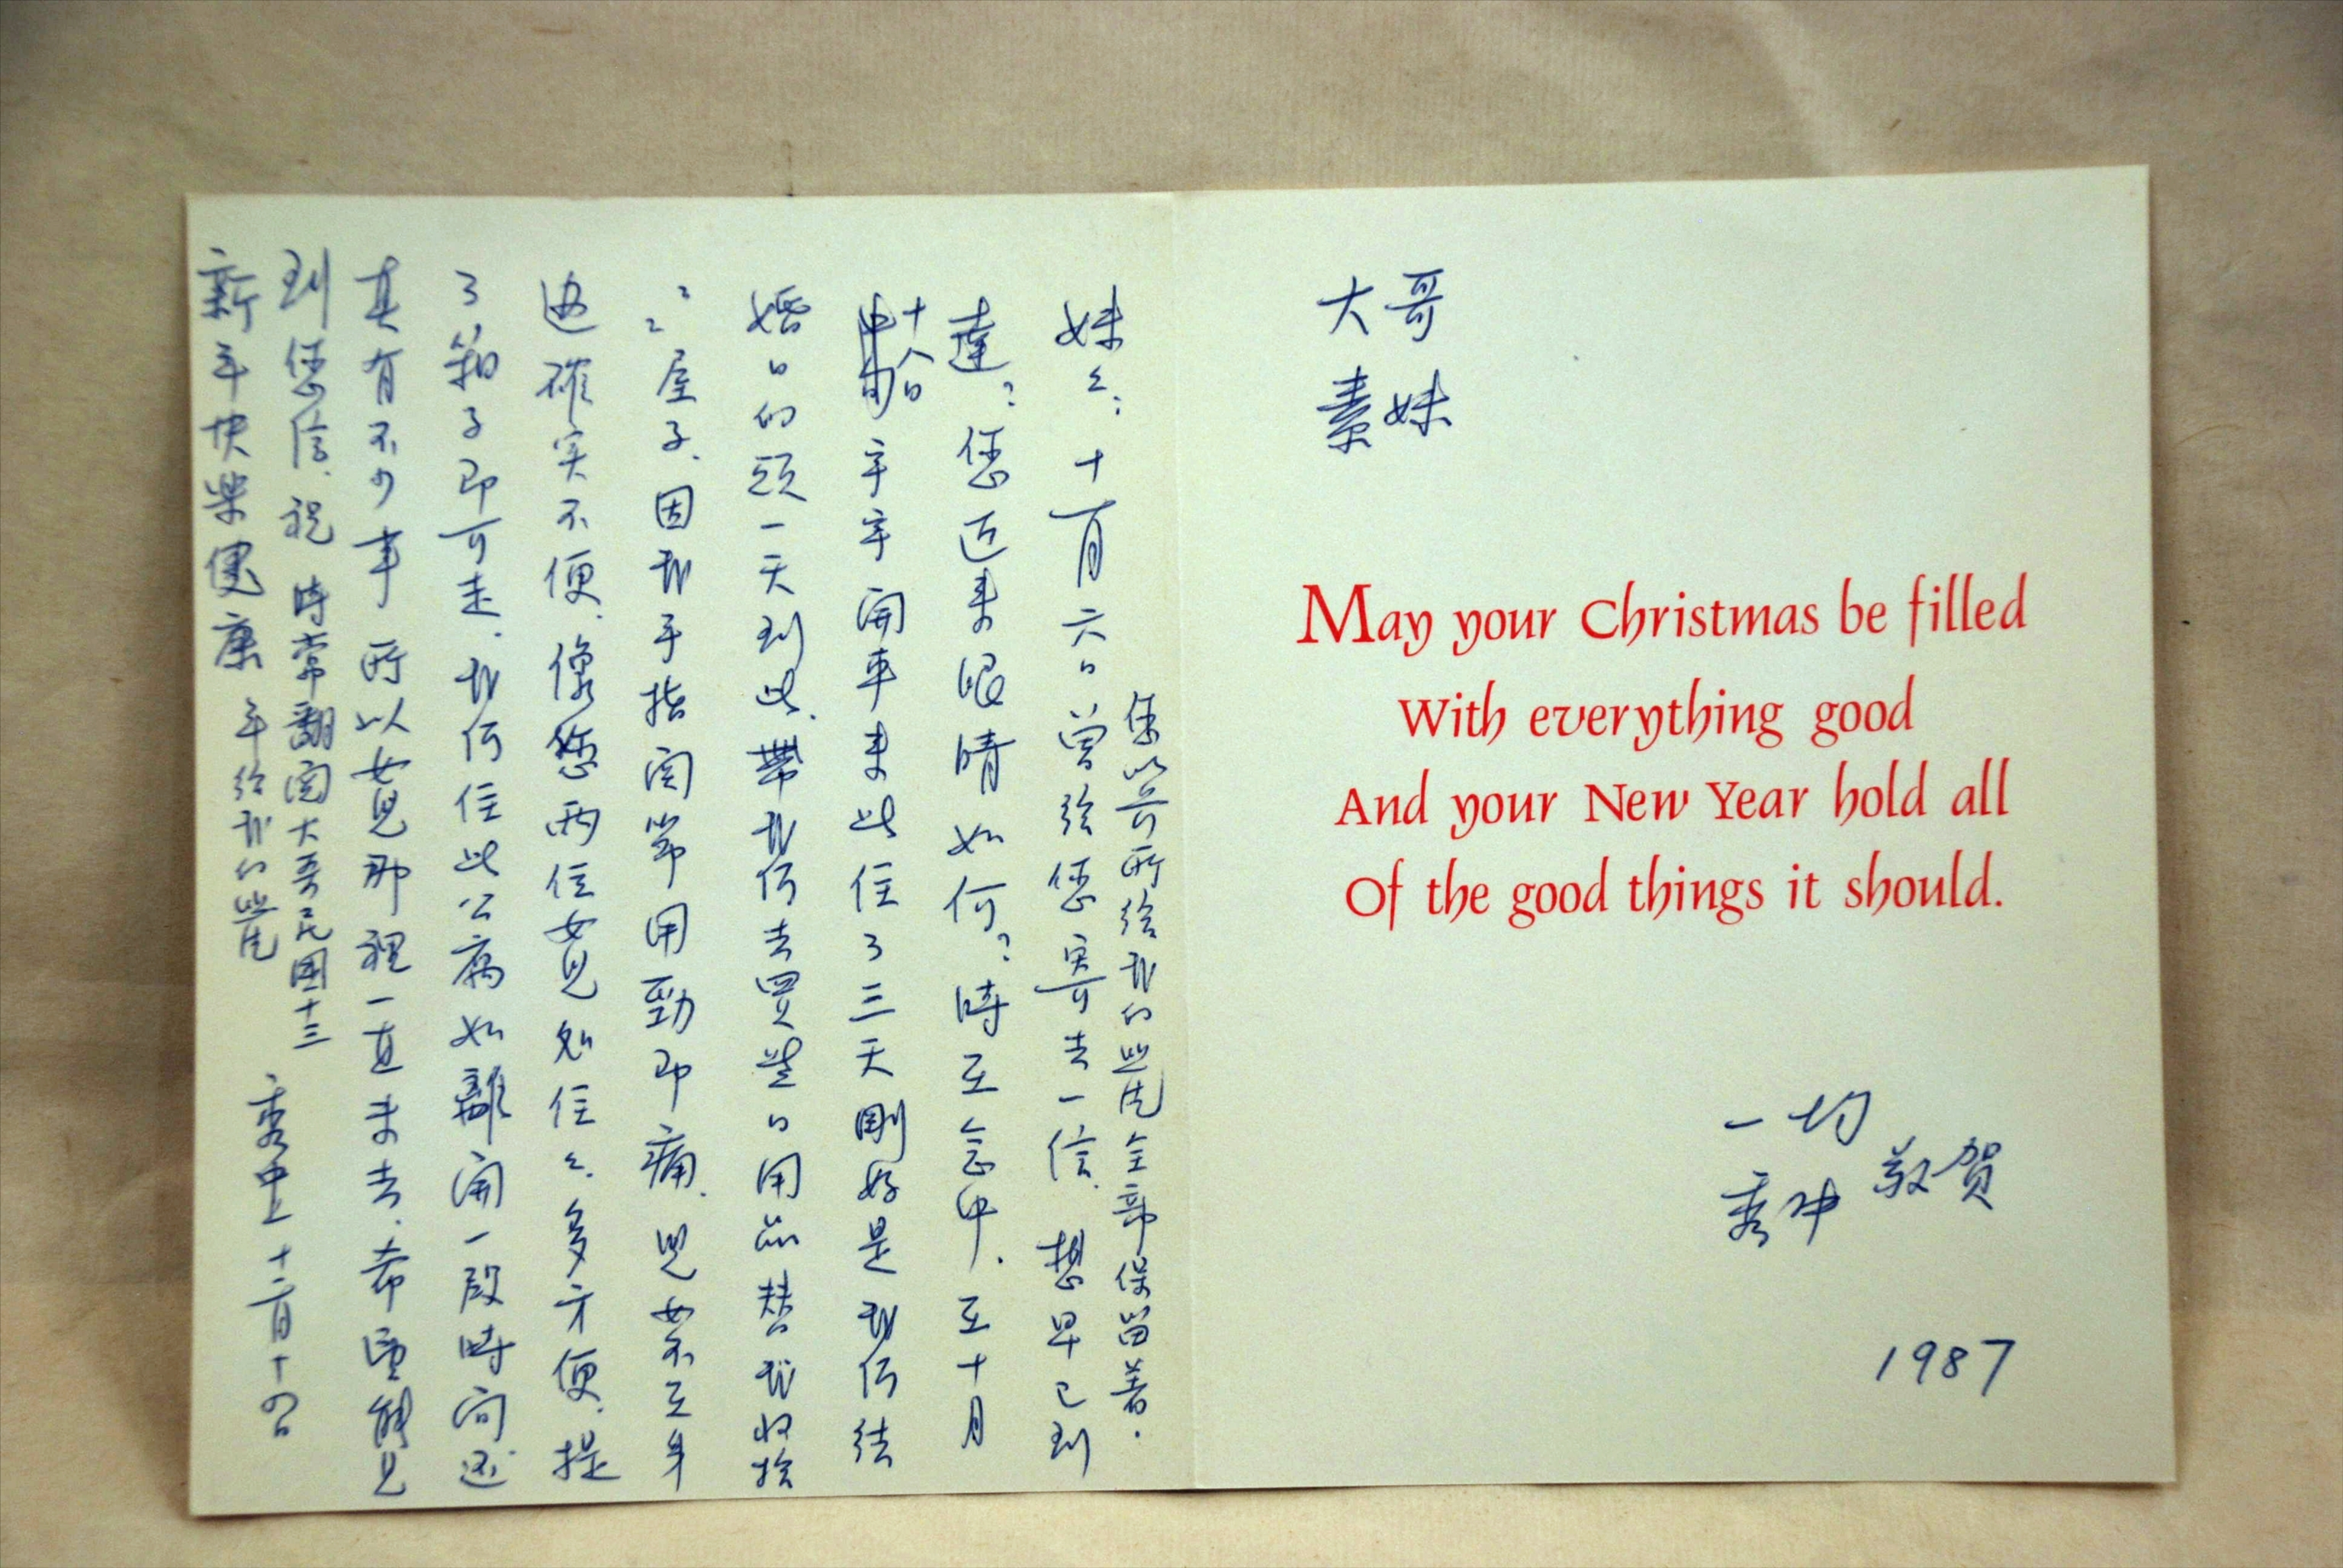 大哥
素妹
May your Christmas be filled
With everything good
And your New Year hold all
Of the good things it should.
一均
秀中 敬贺
1987
妹々:十一月六日曾给您寄去一信.想早已到
達?您近来眼睛如何?時在念中.在十月
十八日宇宇開車来此住了三天剛好是我们结
婚日的頭一天到此.帶我们去買些日用品替我收拾
々屋子.因我手指関節用勁即痛.兒女不在身
边確实不便.像您两位女兒処住々多方便.提
了箱子即可走.我们住此公寓如離開一段時间还
真有不少事所以女兒那裡一直未去.希望能見
到您信.祝
新年快樂健康
秀中上 十二月十四日
時常翻閲大哥民國十三
年给我的照片
您以前所给我的照片全部保留着.